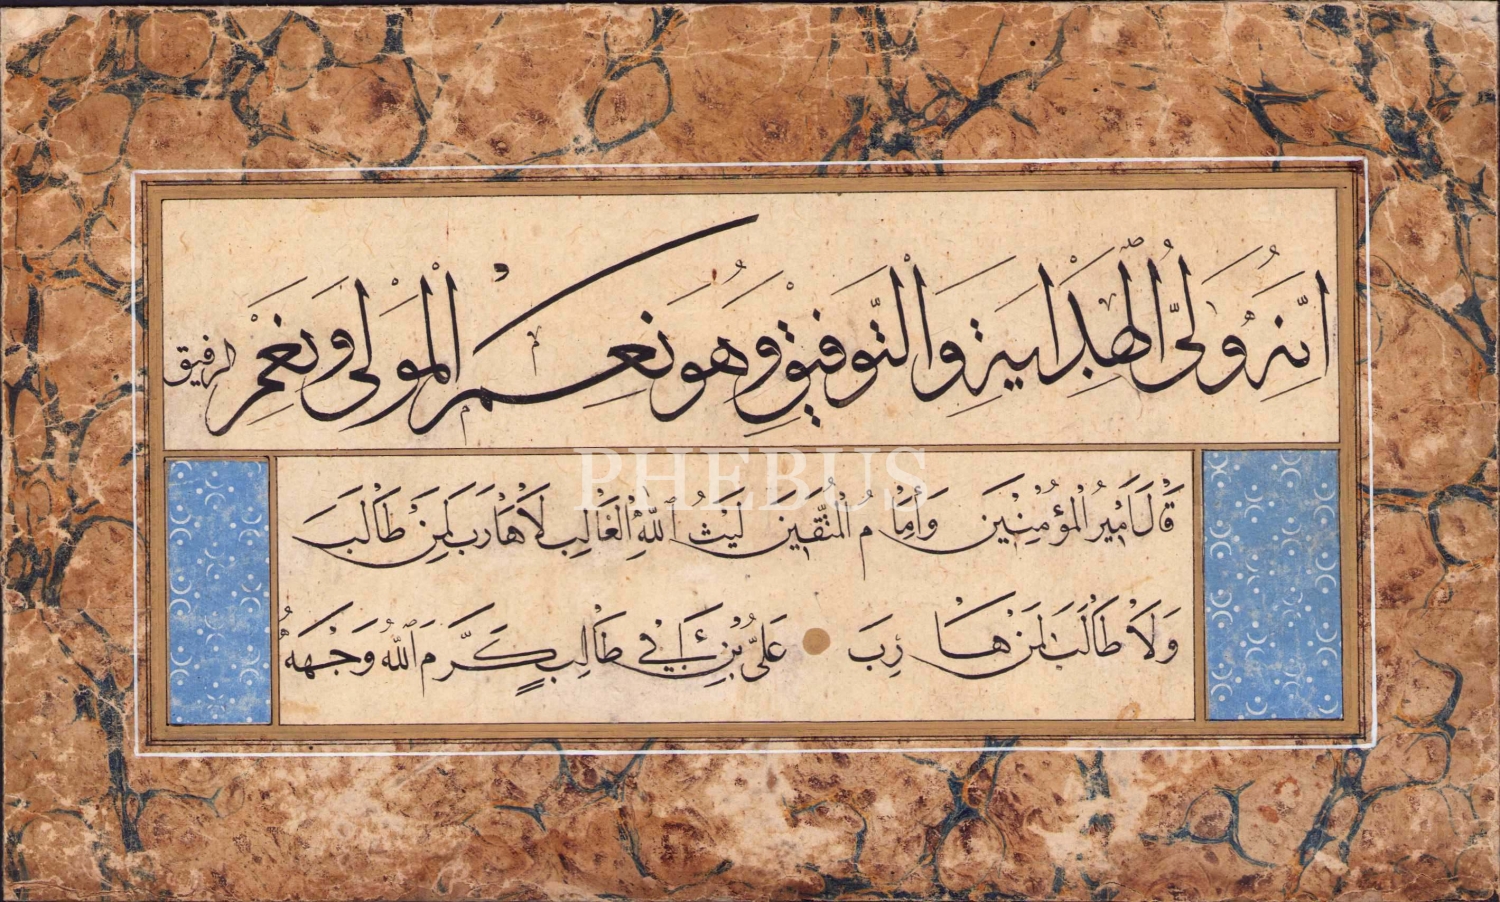 اِنَّهُ وَلِيُّ الْهِدَايَةِ وَالتَّوْفِيقِ وَهُوَ نِعْمَ الْمَوْلٰى وَنِعْمَ الرفيق
PHEBUS
قَالَ اَمِيرُ الْمُؤْمِنِينَ وَاِمَامُ الْمُتَّقِينَ لَيْثُ اللّٰهِ الْغَالِبِ لَاهَارِبَ لِمَنْ طَالَبَ
وَلَا طَالَبَ لِمَنْ هَارِبَ عَلِيُّ بْنِ اَبِي طَالِبٍ كَرَّمَ اللّٰهُ وَجْهَهُ